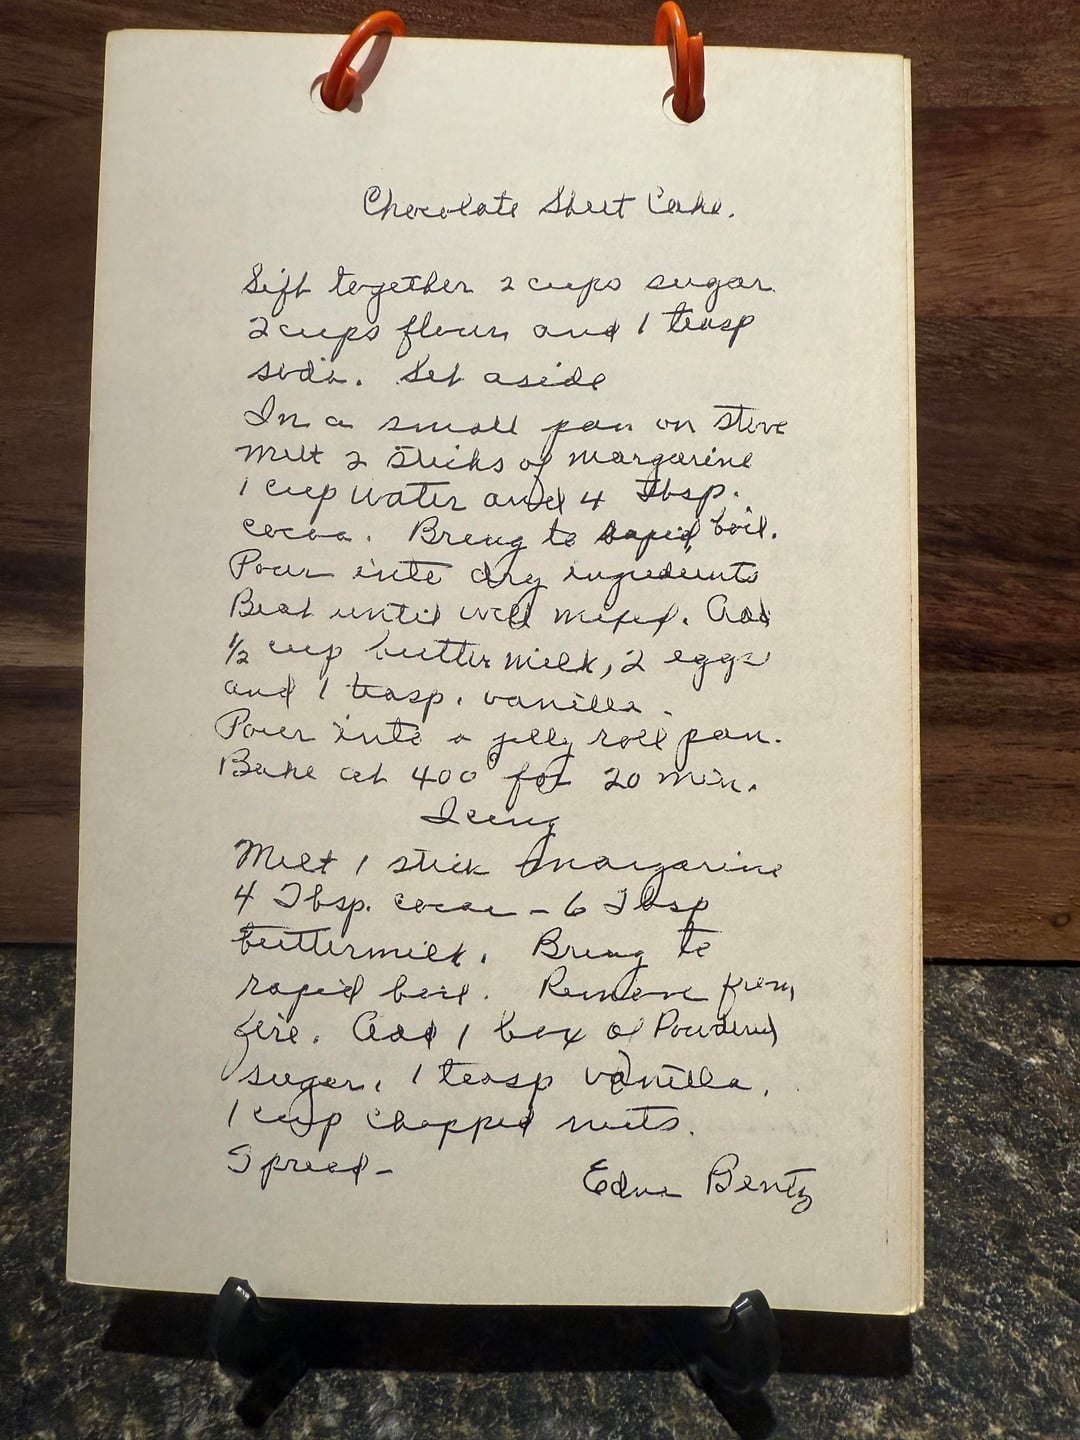 Chocolate Sheet Cake.
Sift together 2 cups sugar
2 cups flour and 1 teasp
soda. Set aside
In a small pan on stove
melt 2 sticks of margarine
1 cup water and 4 Tbsp.
cocoa. Bring to rapid boil.
Pour into dry ingredients
Beat until well mixed. Add
1/2 cup buttermilk, 2 eggs
and 1 teasp. vanilla.
Pour into a jelly roll pan.
Bake at 400° for 20 min.
Icing
Melt 1 stick margarine
4 Tbsp. cocoa - 6 Tbsp
buttermilk. Bring to
rapid boil. Remove from
fire. Add 1 box of Powdered
sugar, 1 teasp vanilla,
1 cup chopped nuts.
Spread -
Edna Bentz